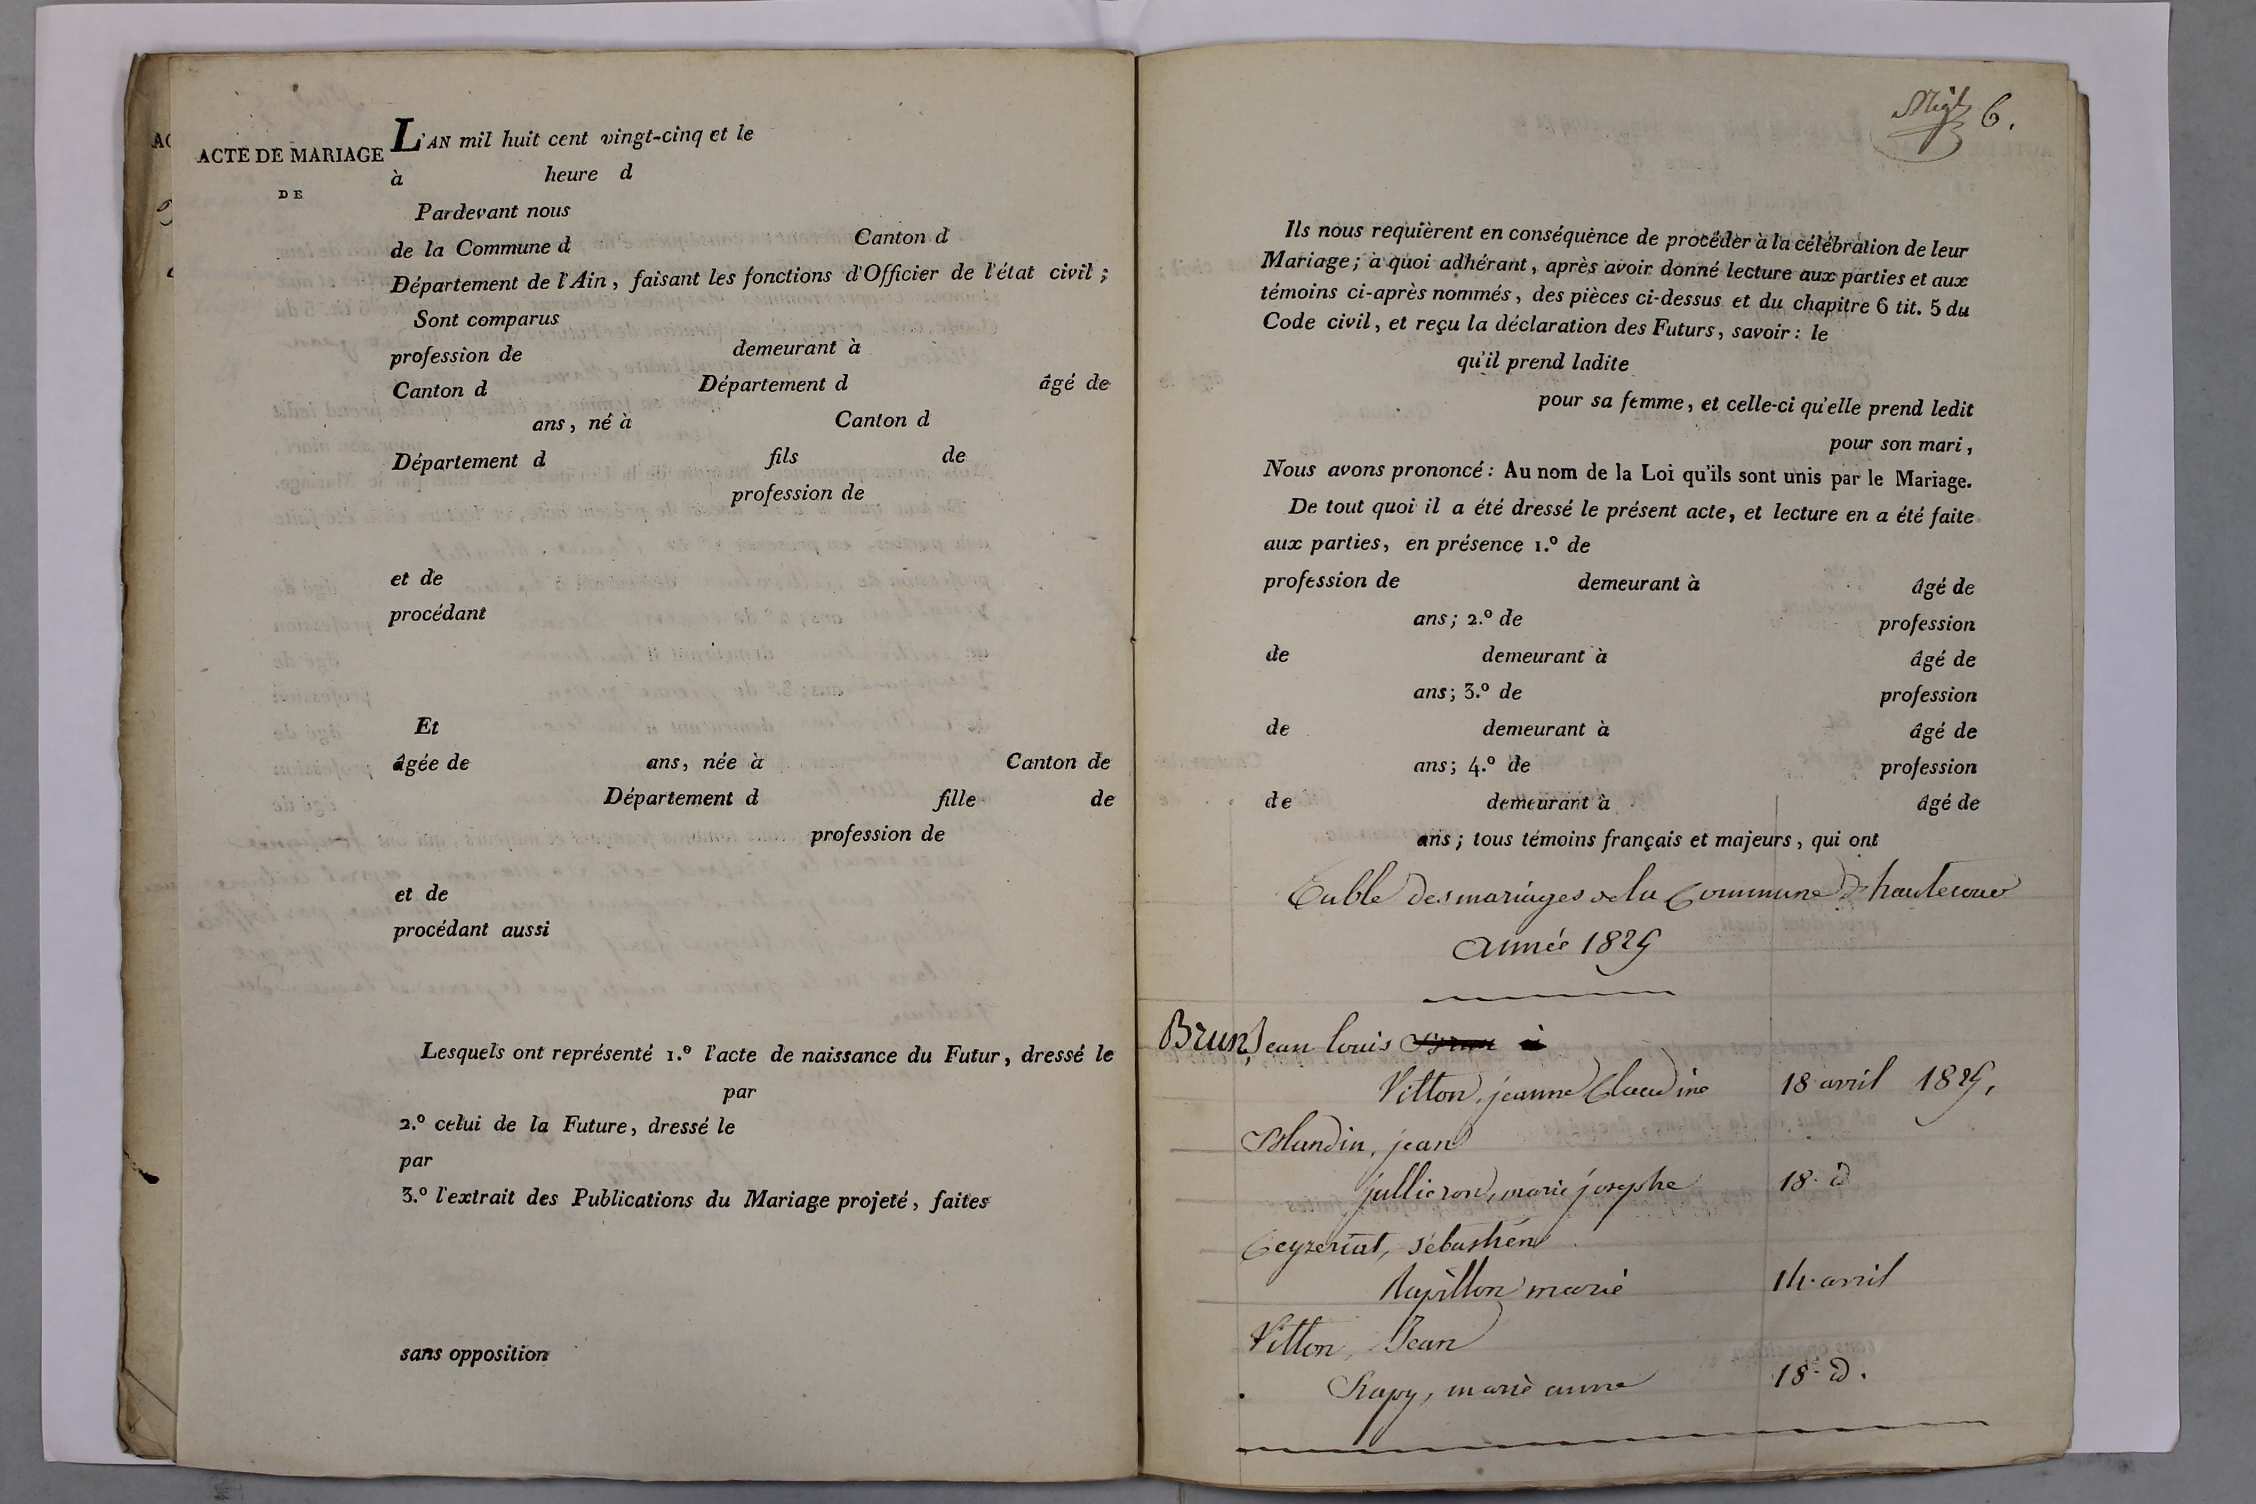 ACTE DE MARIAGE
DE
L'AN mil huit cent vingt-cinq et le
à heure d
Pardevant nous
de la Commune d Canton d
Département de l'Ain, faisant les fonctions d'Officier de l'état civil ;
Sont comparus
profession de demeurant à
Canton d Département d âgé de
ans, né à Canton d
Département d fils de
profession de
et de
procédant
Et
âgée de ans, née à Canton de
Département d fille de
profession de
et de
procédant aussi
Lesquels ont représenté 1.º l'acte de naissance du Futur, dressé le
par
2.º celui de la Future, dressé le
par
3.º l'extrait des Publications du Mariage projeté, faites
sans opposition
6.
Ils nous requièrent en conséquence de procéder à la célébration de leur
Mariage; à quoi adhérant, après avoir donné lecture aux parties et aux
témoins ci-après nommés, des pièces ci-dessus et du chapitre 6 tit. 5 du
Code civil, et reçu la déclaration des Futurs, savoir : le
qu'il prend ladite
pour sa femme, et celle-ci qu'elle prend ledit
pour son mari,
Nous avons prononcé : Au nom de la Loi qu'ils sont unis par le Mariage.
De tout quoi il a été dressé le présent acte, et lecture en a été faite
aux parties, en présence 1.º de
profession de demeurant à âgé de
ans; 2.º de profession
de demeurant à âgé de
ans; 3.º de profession
de demeurant à âgé de
ans; 4.º de profession
de demeurant à âgé de
ans; tous témoins français et majeurs, qui ont
Table des mariages de la Commune d'hautecour
année 1825
Brun, Jean louis
Vitton, jeanne Claudine 18 avril 1825.
Blandin, jean
jullieron, marie josephe 18. d
Ceyzeriat, sébastien
Papillon marie 14. avril
Vitton, Jean
Rapy, marie anne 18. d.